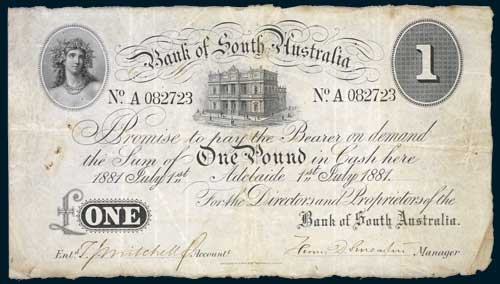 Bank of South Australia
1
No. A 082723 No. A 082723
Promise to pay the Bearer on demand
the Sum of One Pound in Cash here
1881 July 1st Adelaide 1st July 1881.
For the Directors and Proprietors of the
£ONE Bank of South Australia.
Entd. Mitchell Accountt. Manager